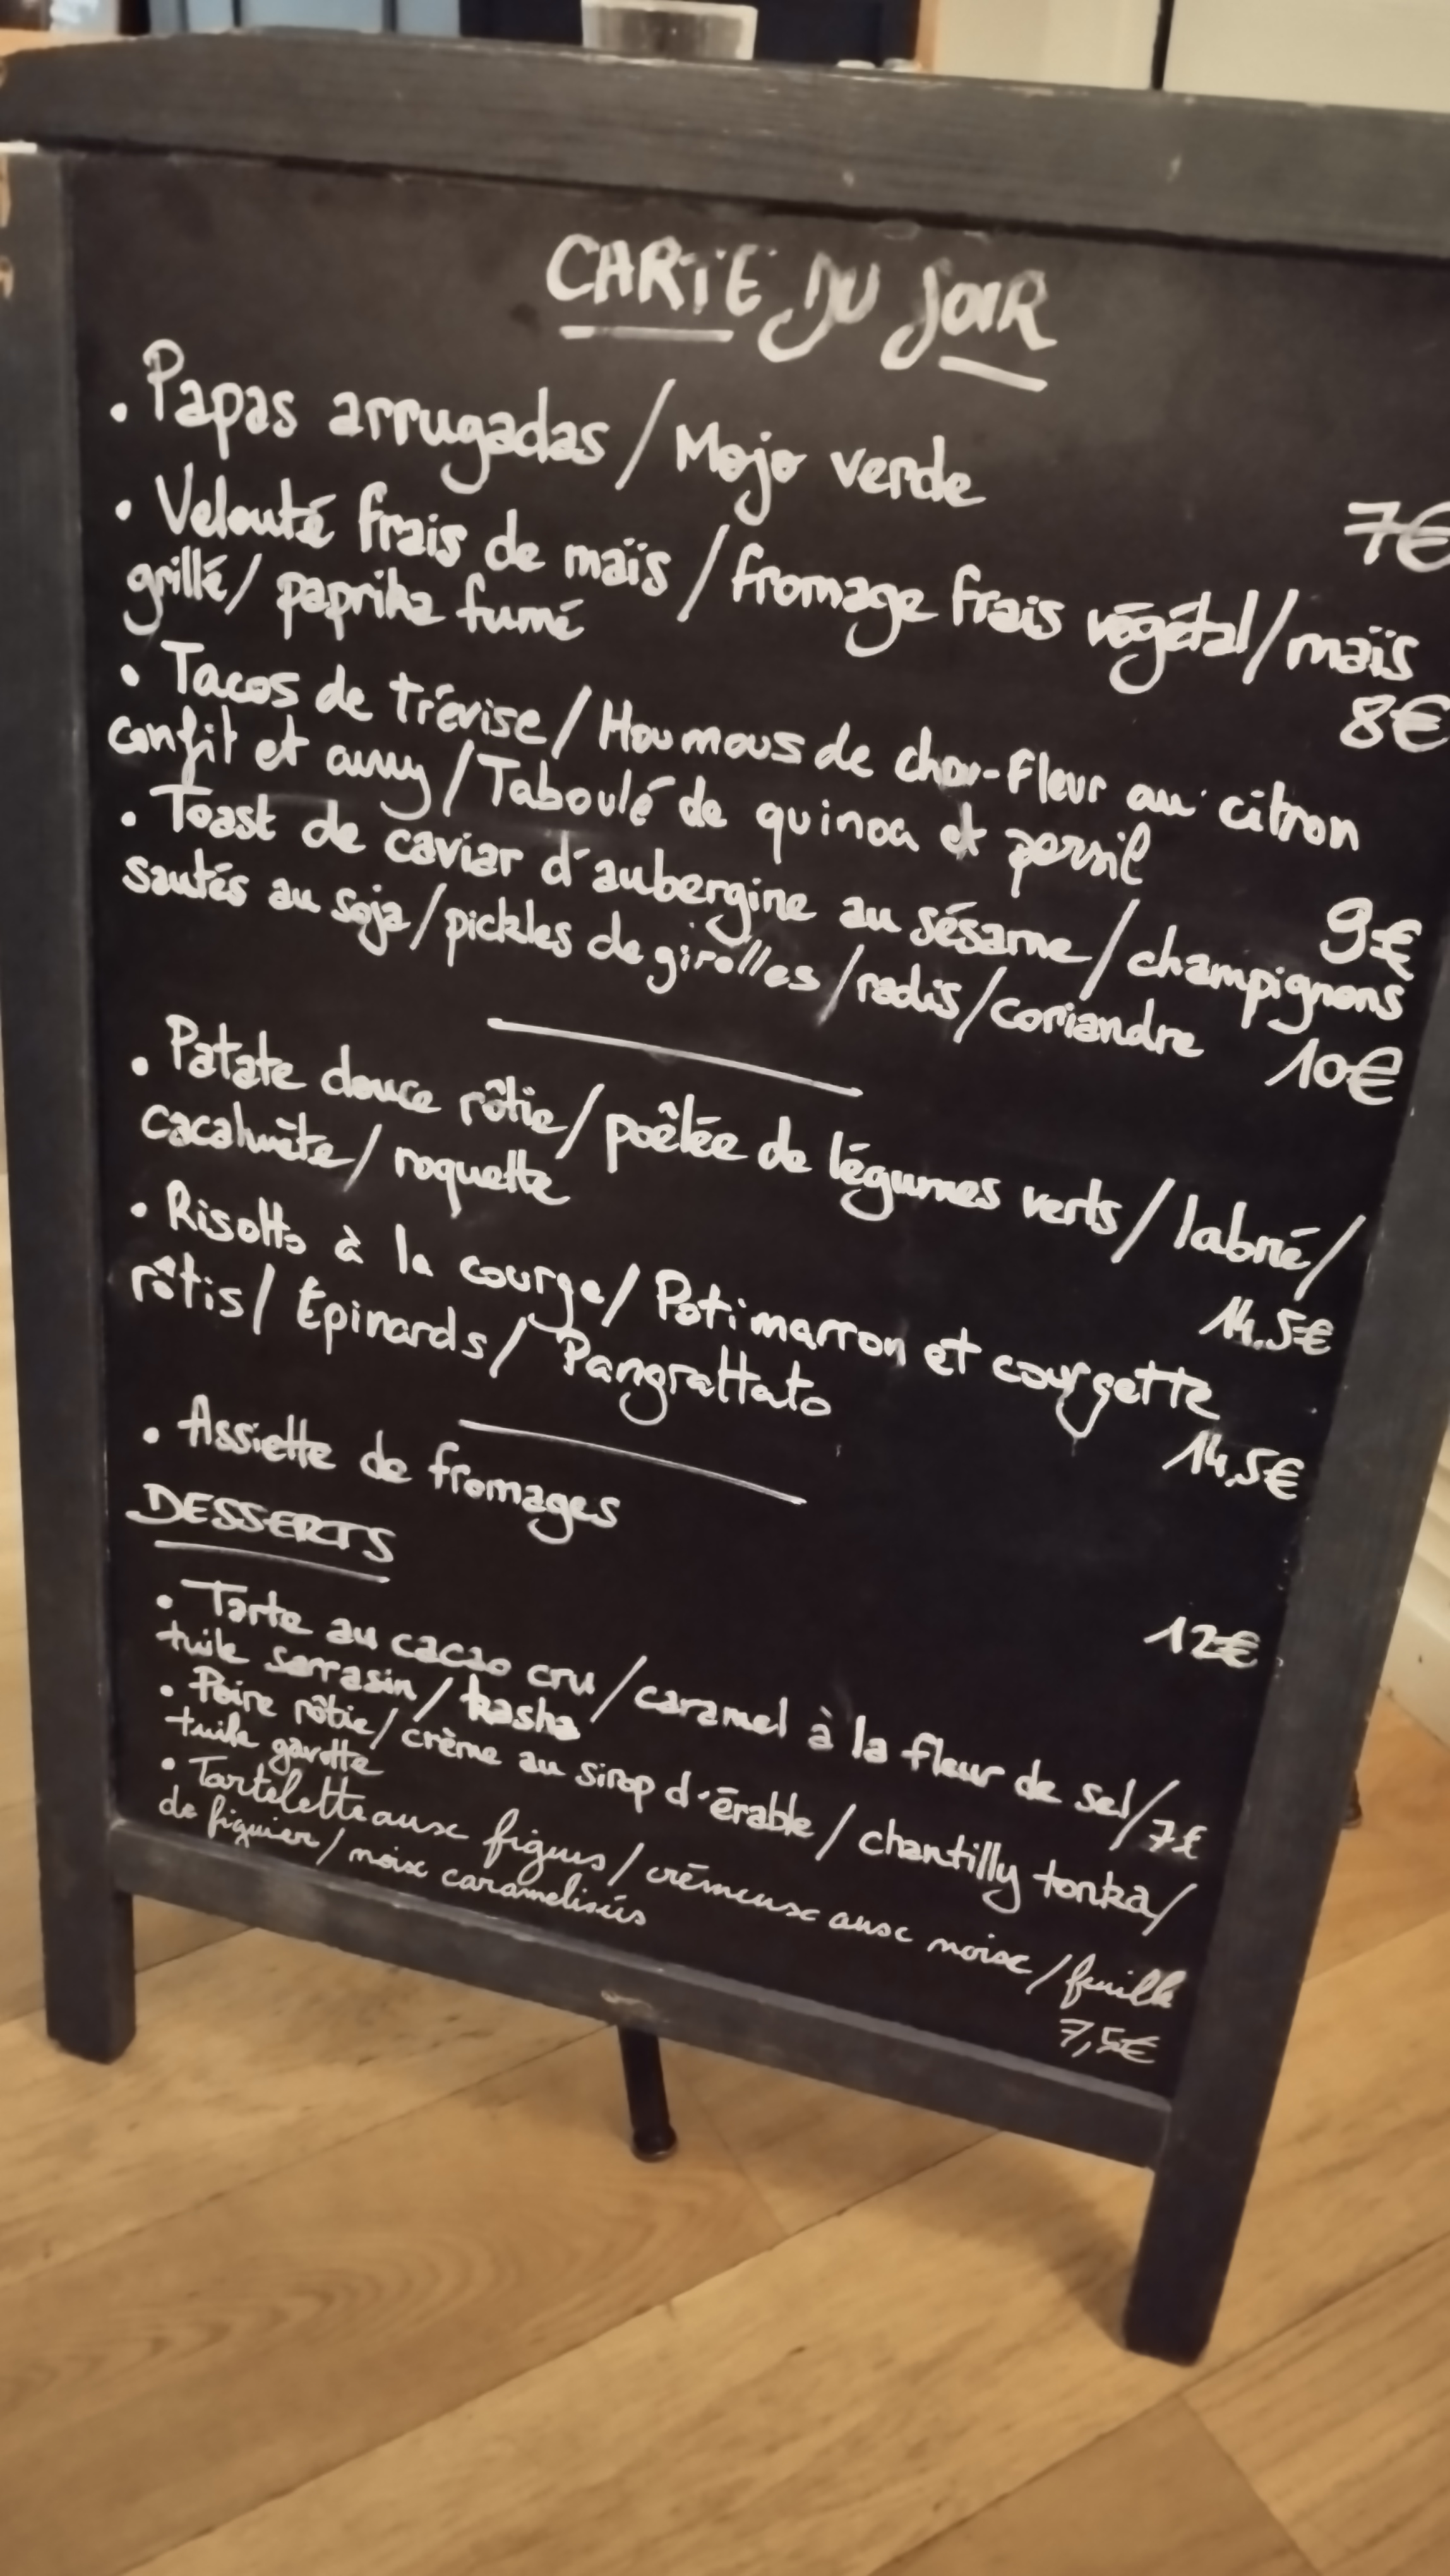 CARTE DU SOIR
• Papas arrugadas / Mojo verde
7€
• Velouté frais de maïs / fromage frais végétal / maïs
grillé / paprika fumé
8€
• Tacos de trévise / Houmous de chou-fleur au citron
confit et curry / Taboulé de quinoa et persil
9€
• Toast de caviar d'aubergine au sésame / champignons
sautés au soja / pickles de girolles / radis / coriandre 10€
• Patate douce rôtie / poêlée de légumes verts / labné /
cacahuète / roquette
14,5€
• Risotto à la courge / Potimarron et courgette
rôtis / Épinards / Pangrattato
14,5€
• Assiette de fromages
12€
DESSERTS
• Tarte au cacao cru / caramel à la fleur de sel /
tuile sarrasin / kasha
7€
• Poire rôtie / crème au sirop d'érable / chantilly tonka /
tuile gavotte
• Tartelette aux figues / crémeux aux noix / feuille
de figuier / noix caramelisés
7,5€